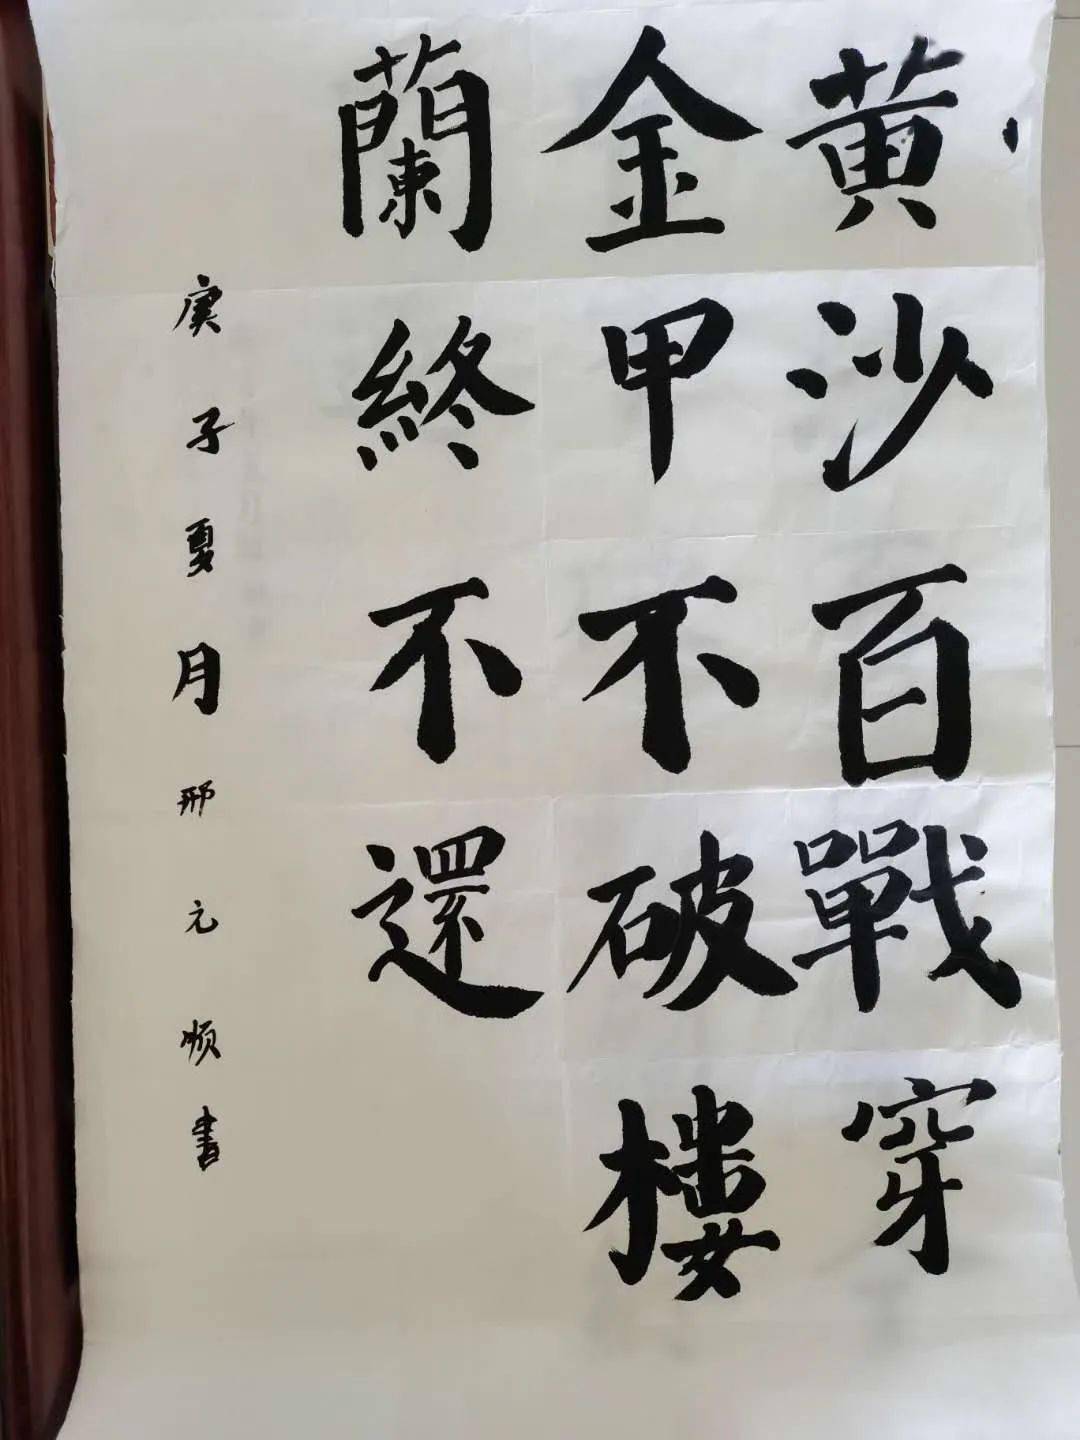 黄沙百戰穿
金甲不破樓
蘭終不還
庚子夏月邢元顺書